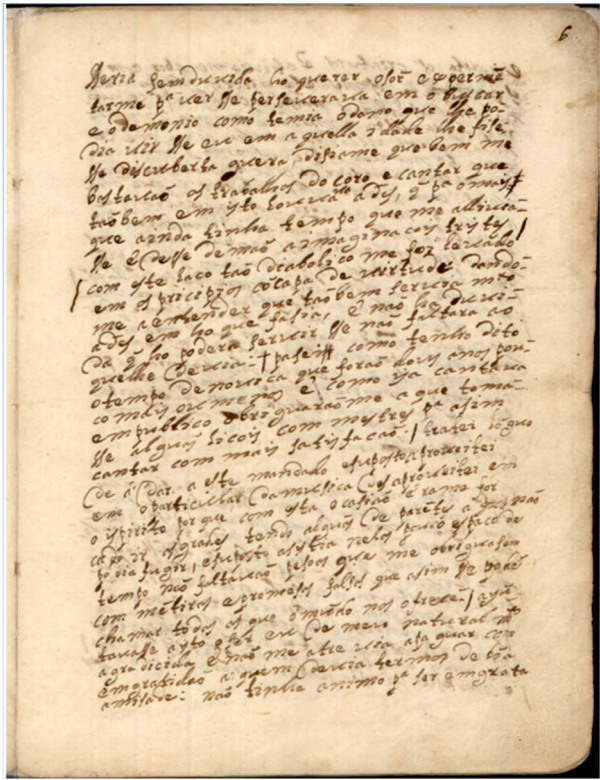 6
Seria sem duvida ho querer o sor̃ experimẽ
tarme pª ver se perseverava em o buscar
e o demonio como temia o dano que lhe po-
dia vir se eu em aquella idade me fise-
se discuberta guera, disiame que bem me
bastavaõ os trabalhos do coro e cantar que
taõbem em isto louvava a dẽs, q̃ pª o mais
que ainda tinha tempo que me alivia-
se e desse de maõ a imaginacois tristes /
com este laco taõ diabolico me fez cercado
/ em os principios cõ capa de virtude dando-
me a entender que taõbem servia mto
a dẽs em ho que fasia, e naõ ha duvi-
da q̃ ho podera servir se naõ faltara ao
que lhe devia: pasei como tenho dito
o tempo de novica que foraõ dous anos pou-
co mais ou menos e como ja cantava
em publico obriguaraõme a que toma-
se algũas licois com mestres pª asim
cantar com mais satisfacaõ / tratei loguo
de dar a este mandado e suposto aproveitei
em o particular da musica desaproveitei em
o ispirito por que com esta ocasiaõ era me for
coso ir as grades tendo algũs de parẽtes a q̃ naõ
podia fugir, e suposto asistia nelas pouco espaco de
tempo naõ faltavaõ pesoas que me obriguasem
com mẽtiras e promesas falsas que asim se podẽ
chamar todas as que o mũdo nos oferece / ajũ-
tavase a isto o ser eu de meu natural mto
agradicida e naõ me atrevia a paguar com
emgratidaõ a quem devia termos de boa
amisade: naõ tinha animo pª ser emgrata